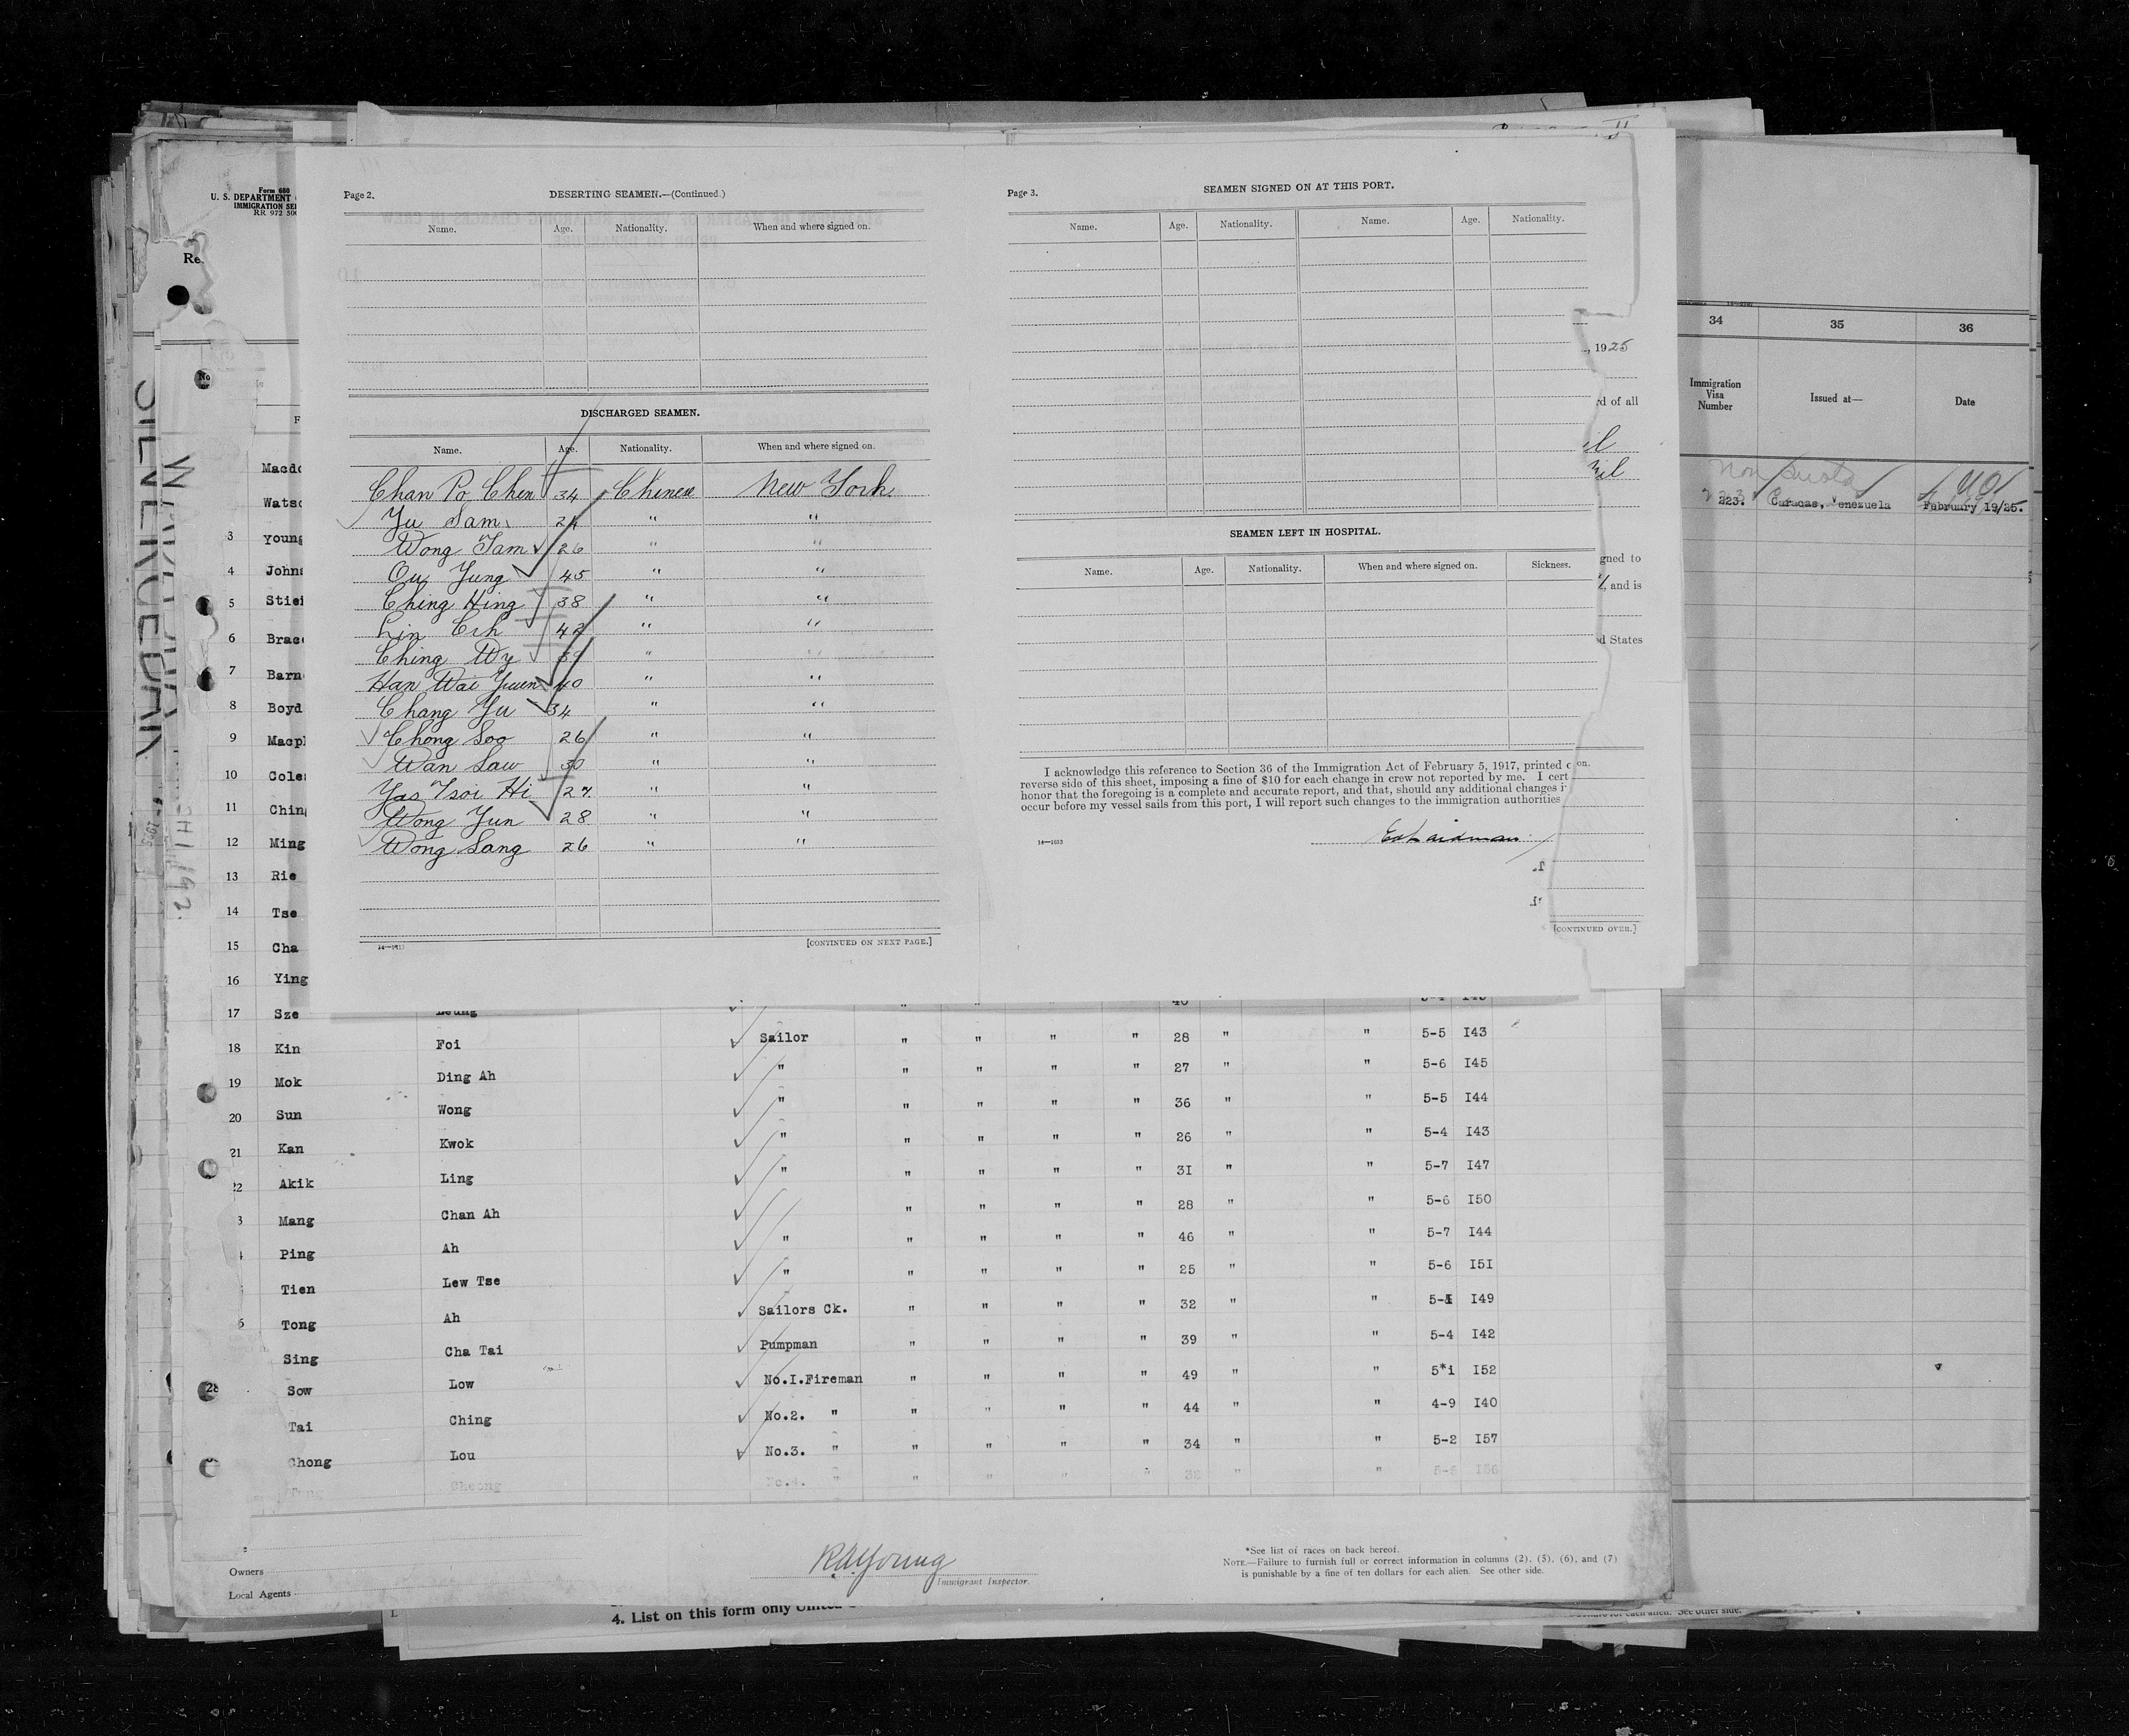 Form 680
U. S. DEPARTMENT
IMMIGRATION SE
RR 972
Page 2.
DESERTING SEAMEN.—(Continued.)
Name. Age. Nationality. When and where signed on.
DISCHARGED SEAMEN.
Name. Age. Nationality. When and where signed on.
Chan Po Chen 34 Chinese New York
Yu Sam 24 " "
Wong Tam 26 " "
Ou Yung 45 " "
Ching Hing 38 " "
Lin 42 " "
Ching Wy " "
Han Wai Yuen 40 " "
Chang Yu 34 " "
Chong Soo 26 " "
Wan Law 30 " "
Yao Tsoi Hi 27 " "
Wong Yun 28 " "
Wong Sang 26 " "
14—1613
[CONTINUED ON NEXT PAGE.]
Page 3.
SEAMEN SIGNED ON AT THIS PORT.
Name. Age. Nationality. Name. Age. Nationality.
SEAMEN LEFT IN HOSPITAL.
Name. Age. Nationality. When and where signed on. Sickness.
I acknowledge this reference to Section 36 of the Immigration Act of February 5, 1917, printed o
reverse side of this sheet, imposing a fine of $10 for each change in crew not reported by me. I cert
honor that the foregoing is a complete and accurate report, and that, should any additional changes i
occur before my vessel sails from this port, I will report such changes to the immigration authorities
14—1613
, 1925
rd of all
gned to
, and is
d States
on.
[CONTINUED OVER.]
34 35 36
Immigration Visa Number Issued at— Date
Non Quota
223. Caracas, Venezuela February 19/25.
Re
No
F
Macdo
Watso
3 Young
4 Johns
5 Stie
6 Brac
7 Barn
8 Boyd
9 Macp
10 Cole
11 Chin
12 Ming
13 Rie
14 Tse
15 Cha
16 Ying
17 Sze Leung
18 Kin Foi Sailor " " " " 28 " " 5-5 I43
19 Mok Ding Ah " " " " " 27 " " 5-6 I45
20 Sun Wong " " " " " 36 " " 5-5 I44
21 Kan Kwok " " " " " 26 " " 5-4 I43
22 Akik Ling " " " " " 31 " " 5-7 I47
3 Mang Chan Ah " " " " 28 " " 5-6 I50
Ping Ah " " " " " 46 " " 5-7 I44
Tien Lew Tse " " " " " 25 " " 5-6 I5I
6 Tong Ah Sailors Ck. " " " " 32 " " 5-1 I49
Sing Cha Tai Pumpman " " " " 39 " " 5-4 I42
28 Sow Low No.I.Fireman " " " " 49 " " 5*1 I52
Tai Ching No.2. " " " " " 44 " " 4-9 I40
Chong Lou No.3. " " " " " 34 " " 5-2 I57
Cheong No.4. " " " " " " " I56
Owners
Local Agents
R.A. Young
Immigrant Inspector.
*See list of races on back hereof.
NOTE.—Failure to furnish full or correct information in columns (2), (5), (6), and (7)
is punishable by a fine of ten dollars for each alien. See other side.
4. List on this form only United
for each alien. See other side.